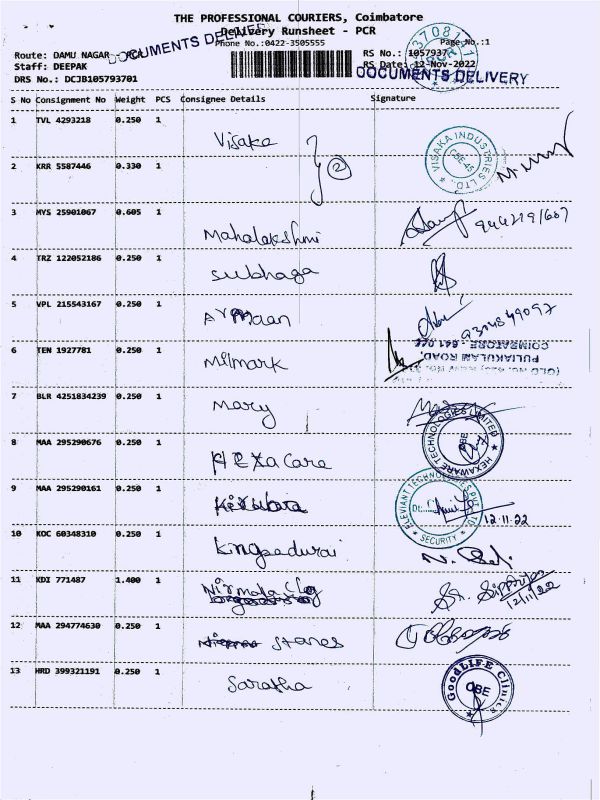 THE PROFESSIONAL COURIERS, Coimbatore
Delivery Runsheet - PCR
Phone No.:0422-3505555
Page No.:1
Route: DAMU NAGAR
DOCUMENTS DELIVERY
RS No.: 1057937
Staff: DEEPAK
RS Date: 12-Nov-2022
DRS No.: DCJB105793701
DOCUMENTS DELIVERY
S No Consignment No Weight PCS Consignee Details Signature
1 TVL 4293218 0.250 1 Visaka
VISAKA INDUSTRIES LTD., CBE-45
2 KRR 5587446 0.330 1
2
3 MYS 25901067 0.605 1 Mahalakshmi
4 TRZ 122052186 0.250 1 Subhaga
5 VPL 215543167 0.250 1 Armaan
6 TEN 1927781 0.250 1 Milmark
PULIAKULAM ROAD,
COIMBATORE - 641
7 BLR 4251834239 0.250 1 Mary
HEXAWARE TECHNOLOGIES LIMITED CBE
8 MAA 295290676 0.250 1 HEXa Care
9 MAA 295290161 0.250 1
SECURITY
12.11.22
10 KOC 60348310 0.250 1 Kingpedurai
11 KDI 771487 1.400 1 Nirmala Clg
12/11/22
12 MAA 294774630 0.250 1 Stanes
13 HRD 399321191 0.250 1 Saratha
GoodLIFE Clinics CBE